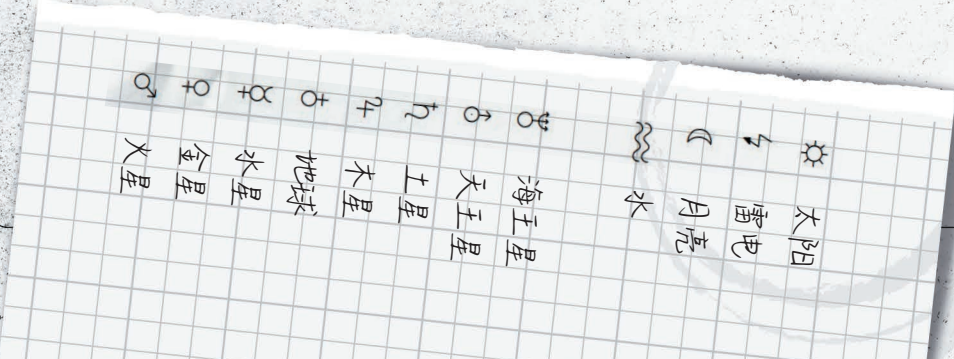 太阳
雷电
月亮
水
海王星
天王星
土星
木星
地球
水星
金星
火星